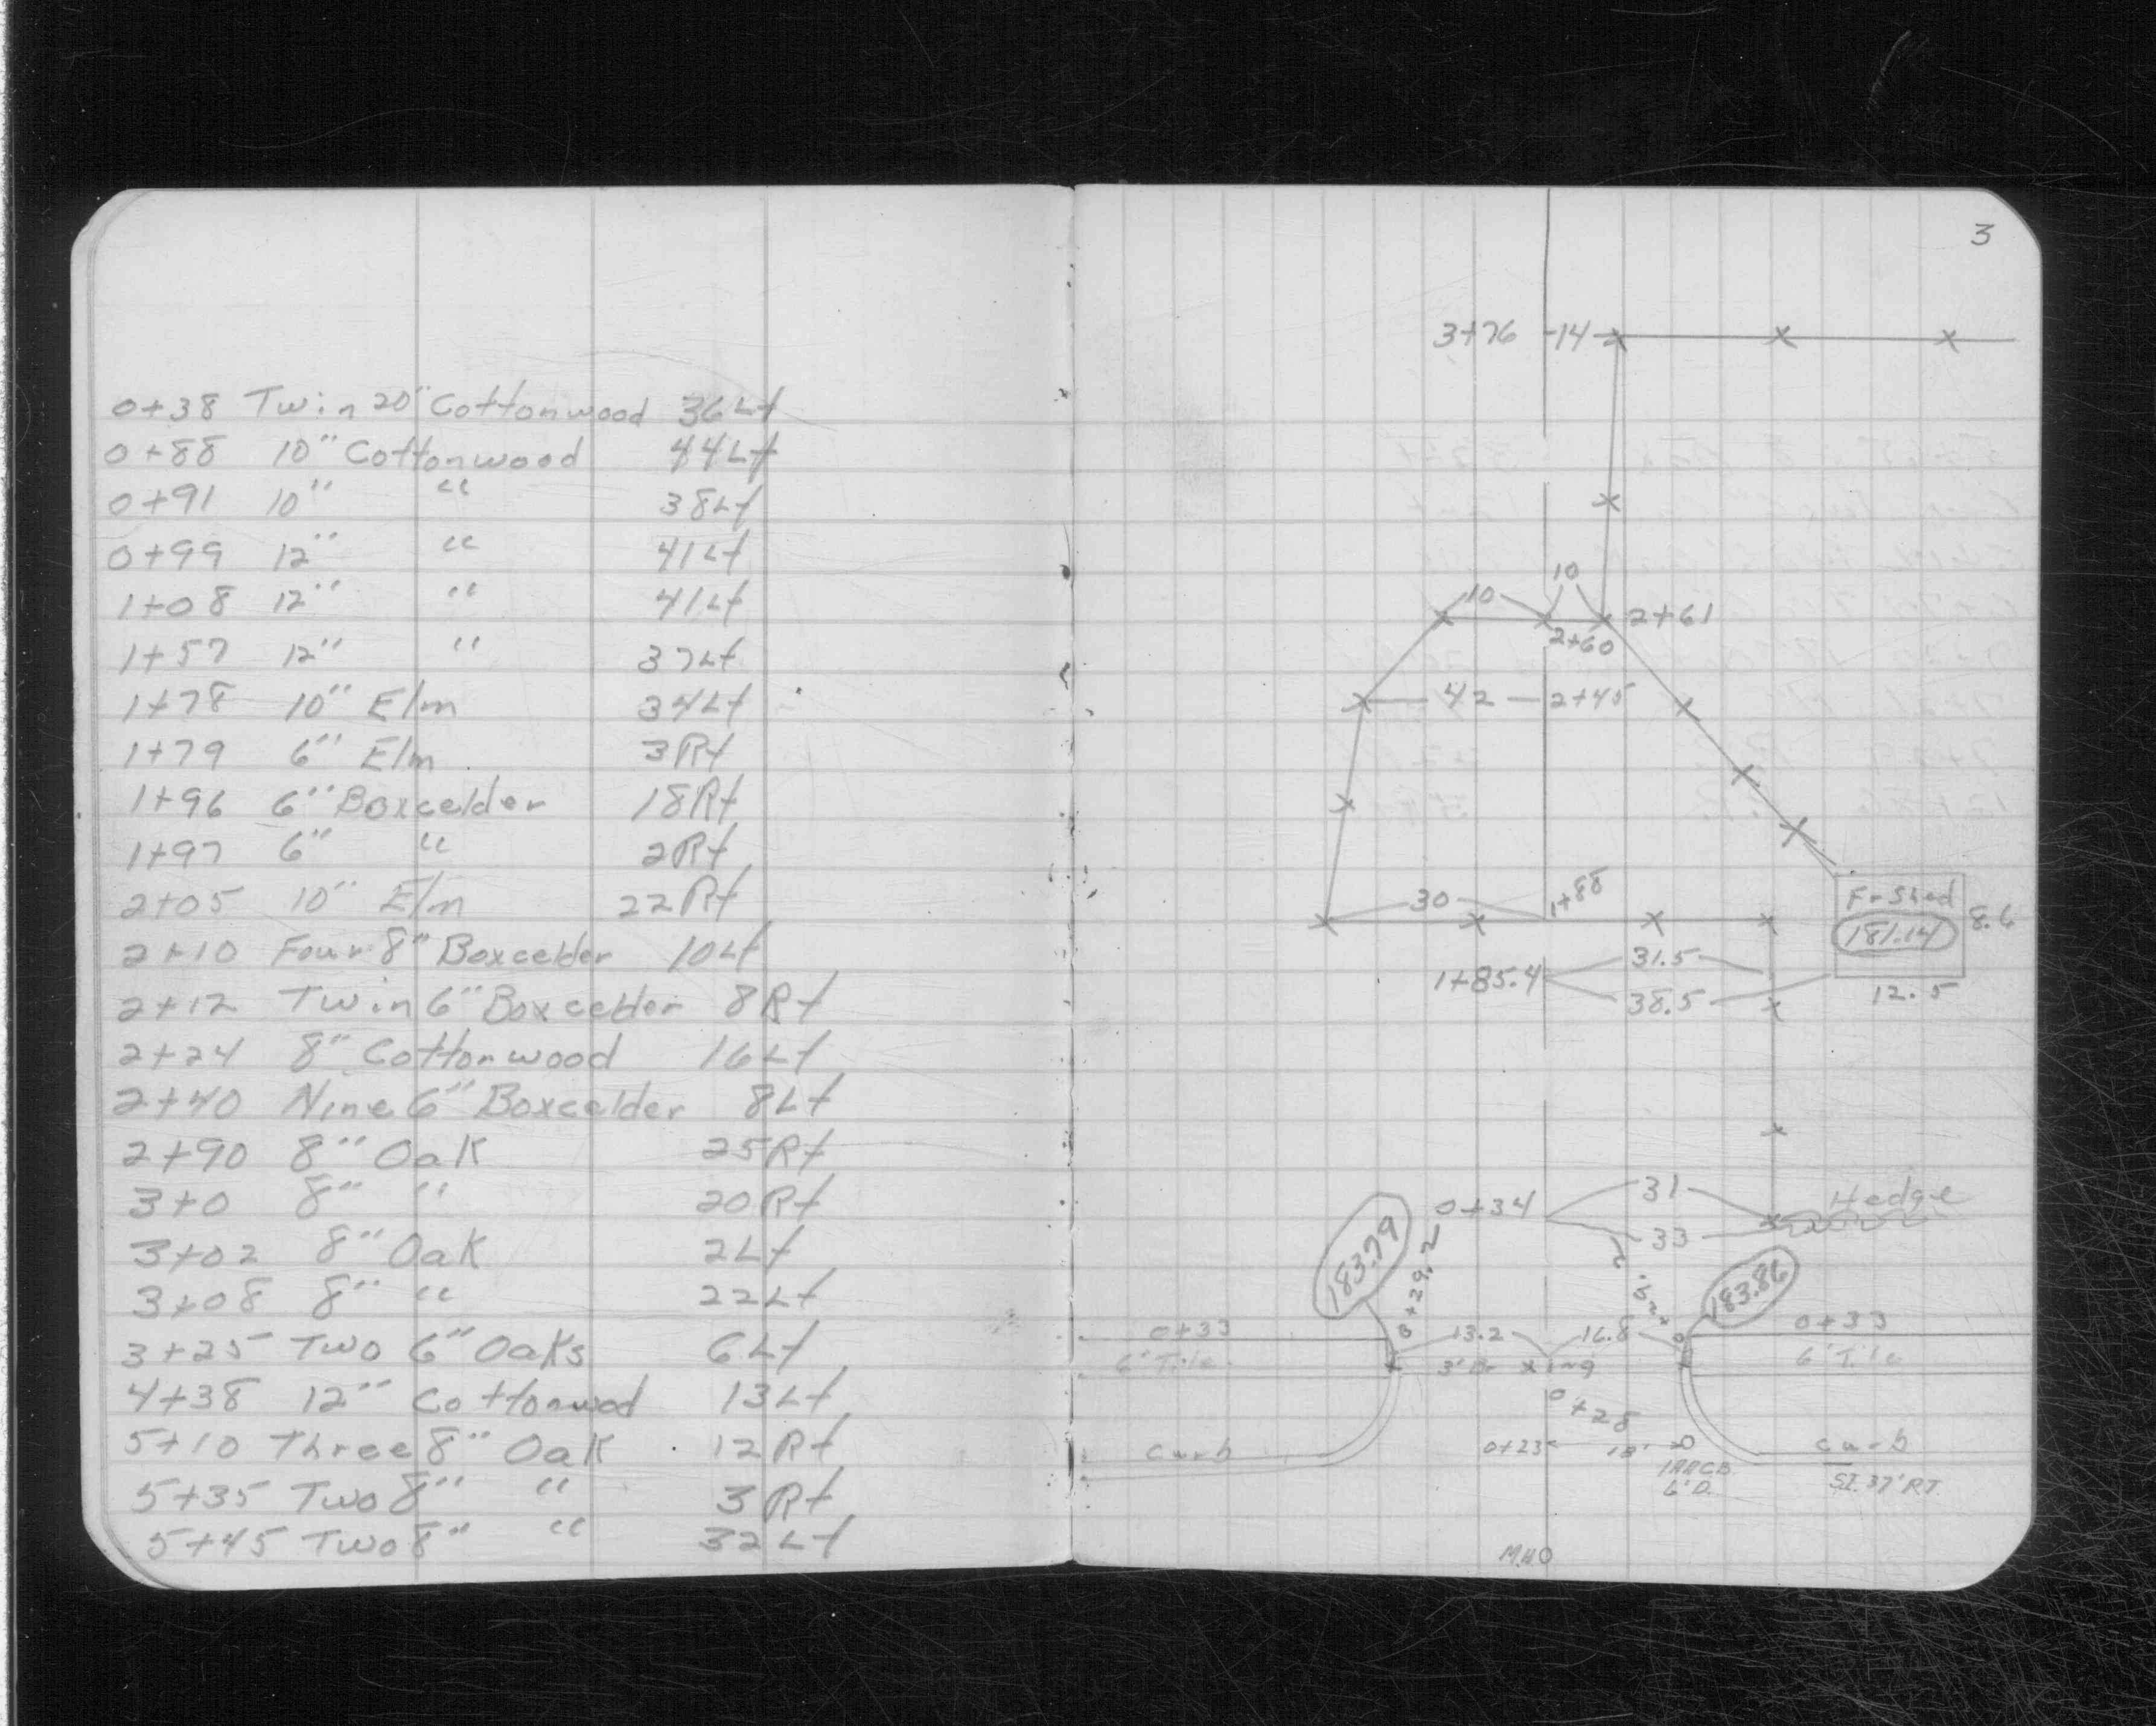 0+38 Twin 20" Cottonwood 36Lt
0+88 10" Cottonwood 44Lt
0+91 10" " 38Lt
0+99 12" " 41Lt
1+08 12" " 41Lt
1+57 12" " 37Lt
1+78 10" Elm 34Lt
1+79 6" Elm 3Rt
1+96 6" Boxcelder 18Rt
1+97 6" " 2Rt
2+05 10" Elm 22Rt
2+10 Four 8" Boxcelder 10Lt
2+12 Twin 6" Boxcelder 8Rt
2+24 8" Cottonwood 16Lt
2+40 Nine 6" Boxcelder 8Lt
2+90 8" Oak 25Rt
3+0 8" " 20Rt
3+02 8" Oak 2Lt
3+08 8" " 22Lt
3+25 Two 6" Oaks 6Lt
4+38 12" Cottonwod 13Lt
5+10 Three 8" Oak 12Rt
5+35 Two 8" " 3Rt
5+45 Two 8" " 32Lt
3
3+76 -14-
10
10 2+61
2+60
42 2+45
30 1+88
Fr Shed
181.14 8.6
31.5
1+85.4
38.5 12.5
31 Hedge
0+34
33
183.79
0+29.2
183.86
0+33 13.2 16.8 0+33
6" Tile 3' Br xing 6" Tile
0+28
curb 0+23 18' curb
6' D. S.I. 37' RT.
M.H.O